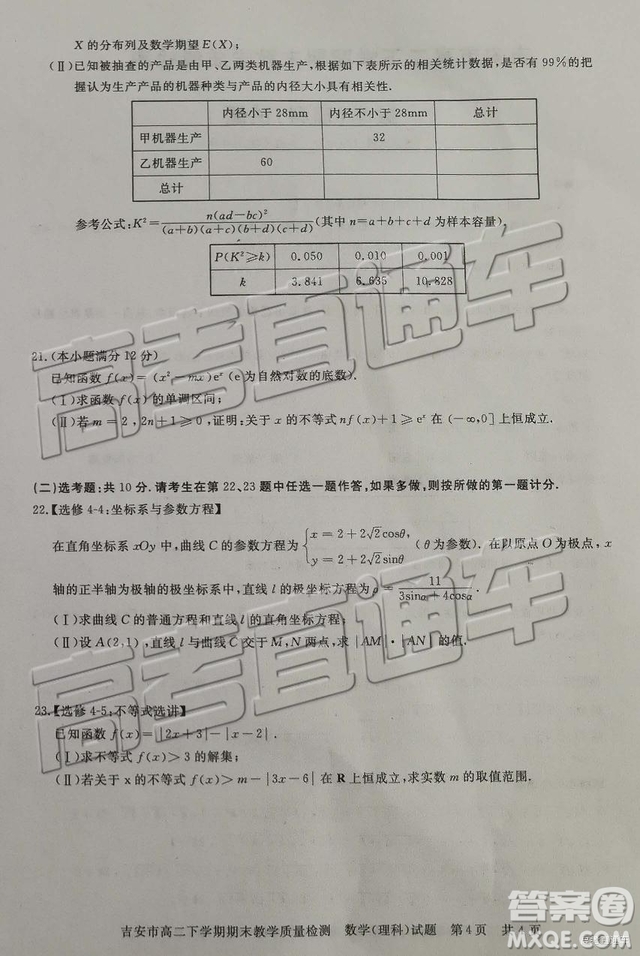 X 的分布列及数学期望 E(X);
(Ⅱ)已知被抽查的产品是由甲、乙两类机器生产,根据如下表所示的相关统计数据,是否有 99%的把
握认为生产产品的机器种类与产品的内径大小具有相关性.
内径小于 28mm 内径不小于 28mm 总计
甲机器生产 32
乙机器生产 60
总计
参考公式:K²=n(ad-bc)²/(a+b)(a+c)(b+d)(c+d)(其中 n=a+b+c+d 为样本容量).
P(K²⩾k) 0.050 0.010 0.001
k 3.841 6.635 10.828
21.(本小题满分 12 分)
已知函数 f(x)=(x²-mx)eˣ(e 为自然对数的底数).
(Ⅰ)求函数 f(x)的单调区间;
(Ⅱ)若 m=2,2n+1>0,证明:关于 x 的不等式 nf(x)+1⩾eˣ 在(-∞,0]上恒成立.
(二)选考题:共 10 分.请考生在第 22、23 题中任选一题作答,如果多做,则按所做的第一题计分.
22.【选修 4-4:坐标系与参数方程】
在直角坐标系 xOy 中,曲线 C 的参数方程为{x=2+2√2cosθ, y=2+2√2sinθ (θ 为参数).在以原点 O 为极点,x
轴的正半轴为极轴的极坐标系中,直线 l 的极坐标方程为 ρ=11/3sinα+4cosα.
(Ⅰ)求曲线 C 的普通方程和直线 l 的直角坐标方程;
(Ⅱ)设 A(2,1),直线 l 与曲线 C 交于 M,N 两点,求|AM|·|AN|的值.
23.【选修 4-5:不等式选讲】
已知函数 f(x)=|2x+3|-|x-2|.
(Ⅰ)求不等式 f(x)>3 的解集;
(Ⅱ)若关于 x 的不等式 f(x)>m-|3x-6|在 R 上恒成立,求实数 m 的取值范围.
吉安市高二下学期期末教学质量检测 数学(理科)试题 第 4 页 共 4 页
高考直通车
高考直通车
高考直通车
答案圈
MXQE.COM